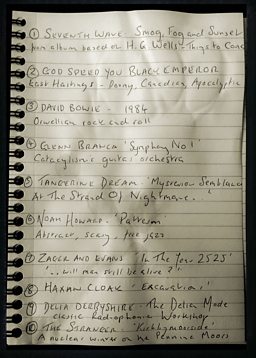 ① SEVENTH WAVE - Smog, Fog and Sunset
album based on H.G. Wells' Things to Come
② GOD SPEED YOU BLACK EMPEROR
East Hastings - Canadian, Apocalyptic
③ DAVID BOWIE - 1984
Orwellian rock and roll
④ GLENN BRANCA 'Symphony No 1'
Cataclysmic guitar orchestra
⑤ TANGERINE DREAM - 'Mysterious Semblance
At The Strand Of Nightmare.'
⑥ NOAH HOWARD - 'Patterns'
Abstract, scary, free jazz
⑦ ZAGER AND EVANS 'In The Year 2525'
'.. will man still be alive?'
⑧ HAXAN CLOAK 'Excavation'
⑨ DELIA DERBYSHIRE - The Delian Mode
classic Radiophonic Workshop
⑩ THE STRANGER - 'Kirklymoorside'
A nuclear winter on the Pennine Moors